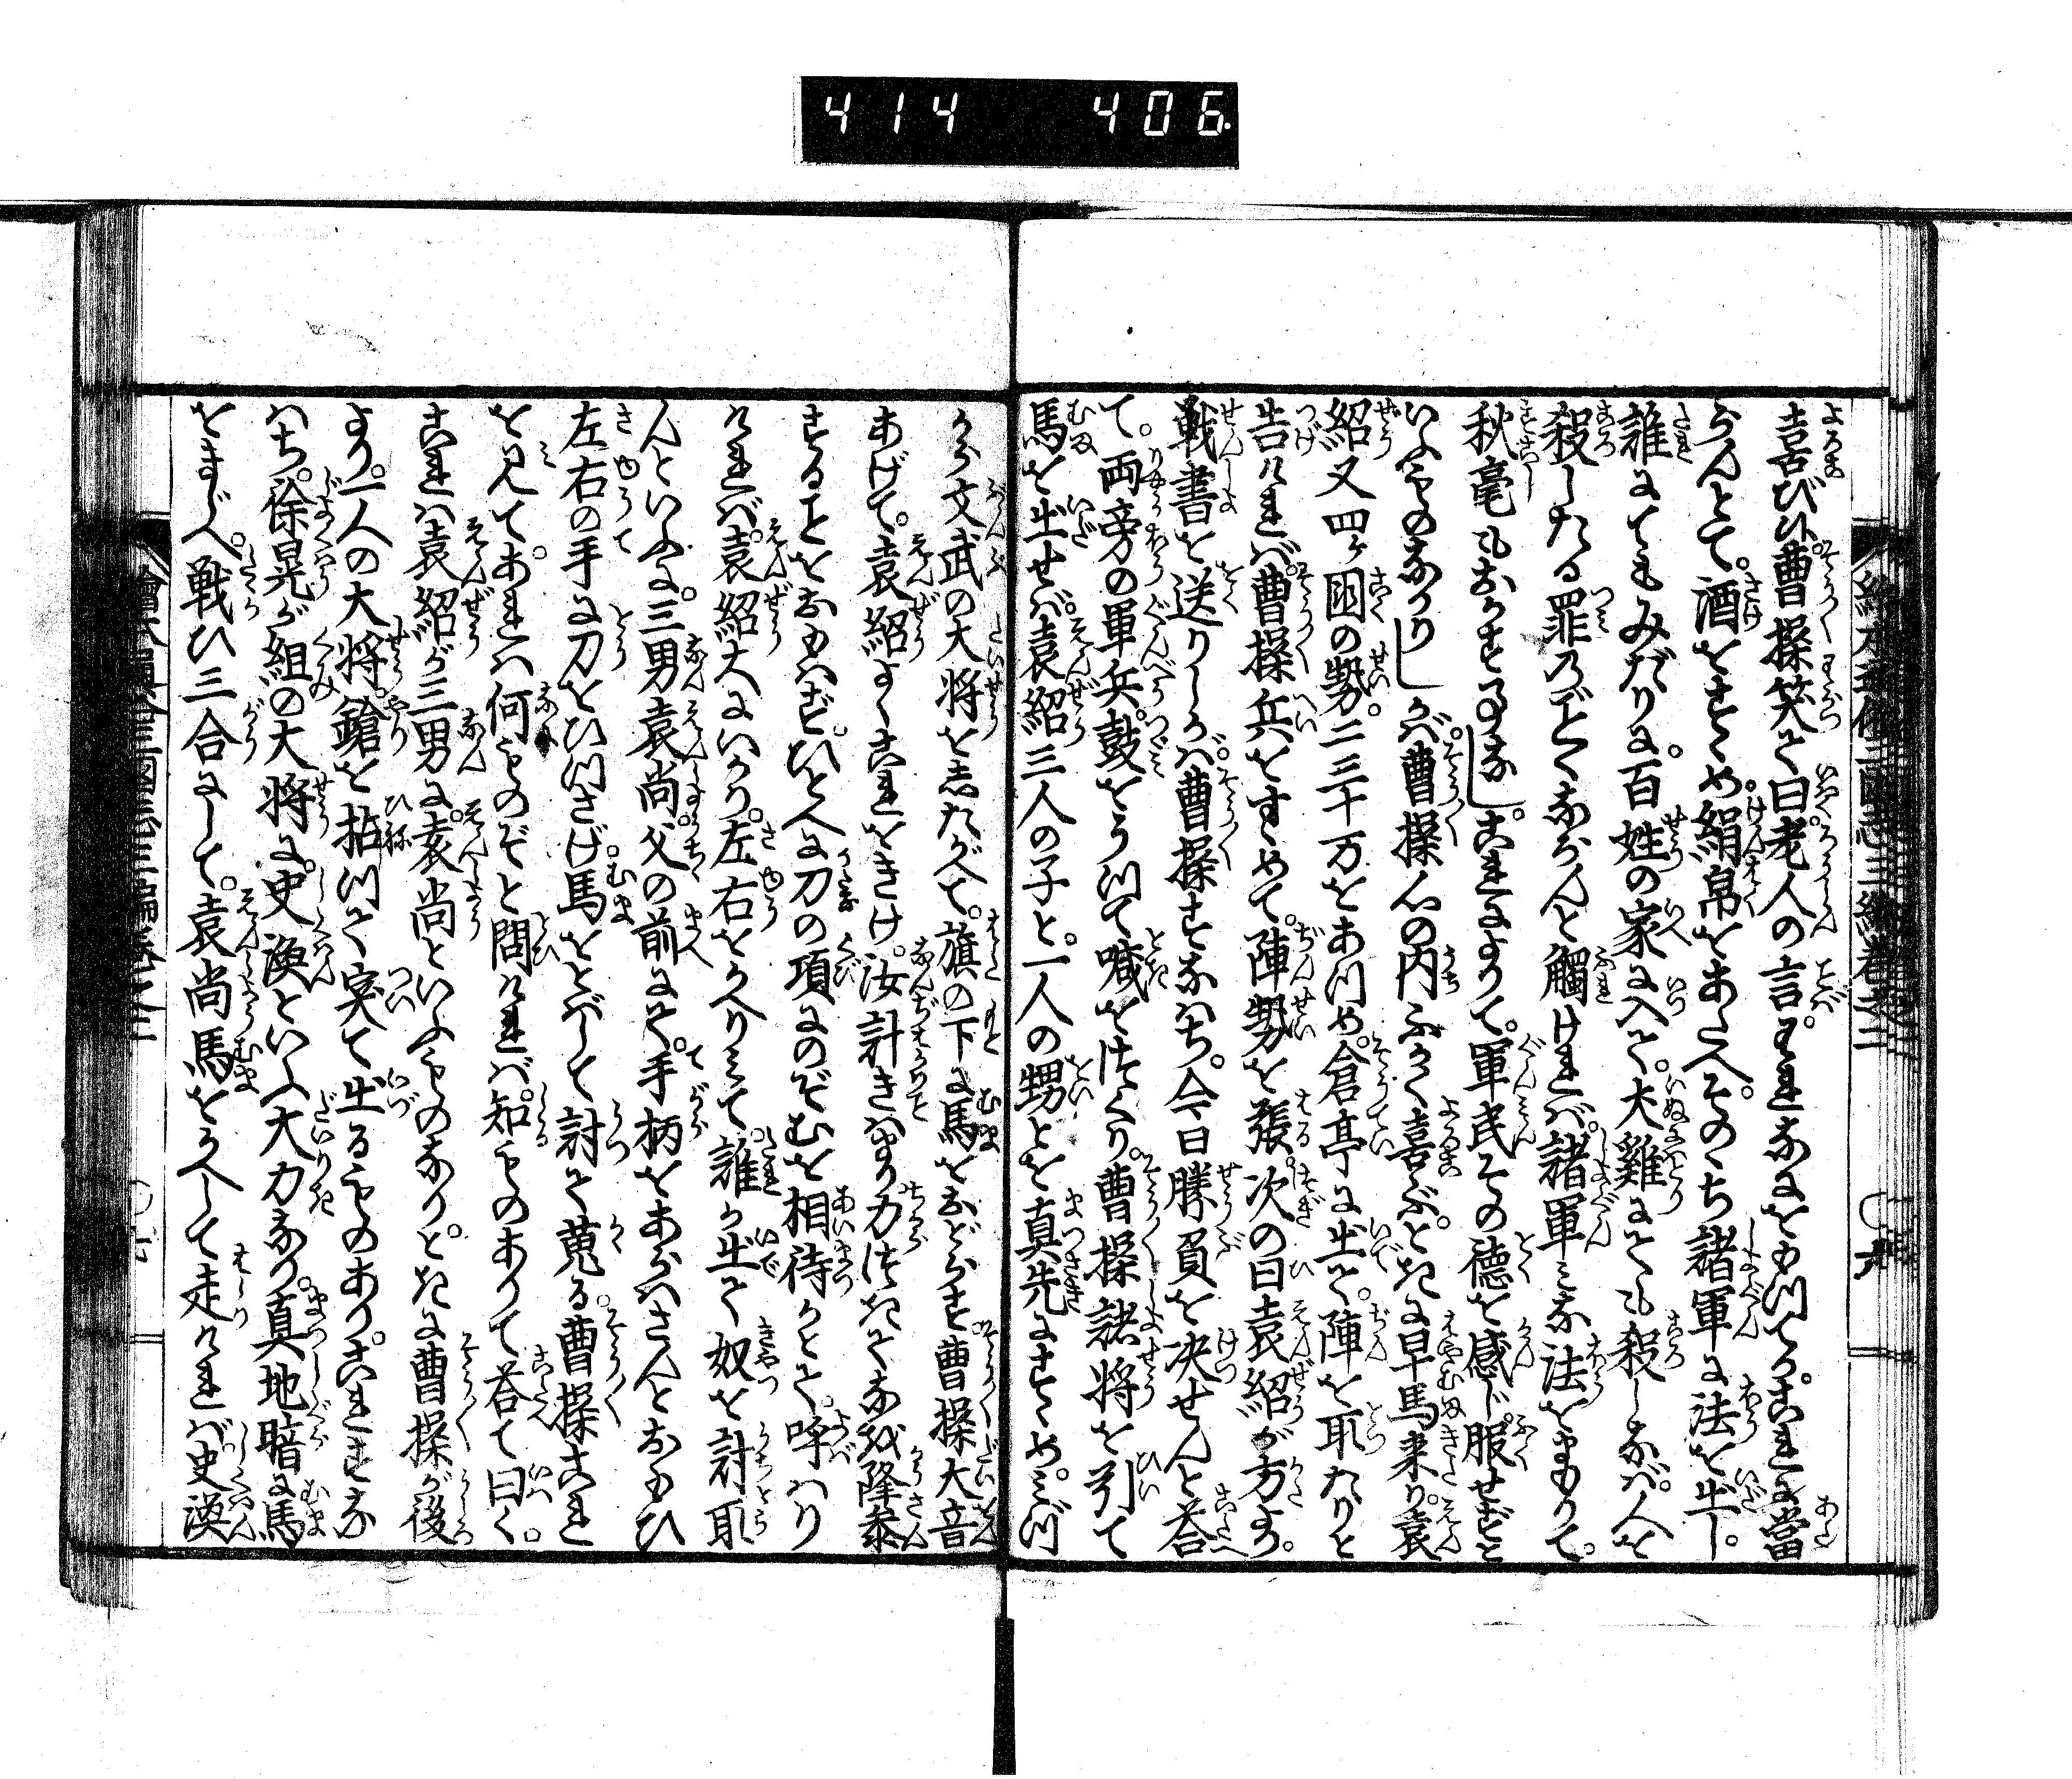 414 406
喜びぬ曹操笑て曰老人の言われなにをもつてかこれに當
らんとて。酒をすゝめ。絹帛をあたへ。そののち諸軍に法を出し。
誰にてもみだりに。百姓の家に入て。犬雞にても殺しなば。人を
殺したる罪のごとくならんと觸ければ。諸軍みな法をまもりて。
秋毫もおかす事なし。これによりて。軍民その徳を感じ服せずと
いふものなかりしかば。曹操心の内ふかく喜ぶ。ときに早馬来り。袁
紹又四ヶ国の勢。二三十万をあつめ。倉亭に出て。陣を取たりと
告ければ。曹操兵をすゝめて。陣勢を張。次の日袁紹が方より。
戦書を送りしかば。曹操すなはち。今日勝負を决せんと答
て。両旁の軍兵。鼓をうつて喊をつくり。曹操諸将を引て
馬を出せば。袁紹三人の子と。一人の甥とを真先にすゝめ。みづ
から文武の大将をしたがへて。旗の下に馬をおどらす。曹操大音
あげて。袁紹よくこれをきけ。汝計きはまり力つきてなほ降参
することをおもはず。ひとへに刀の項にのぞむを相待かとて。呼はり
ければ。袁紹大にいかり。左右をかへりみて。誰か出て奴を討取
んといふに。三男袁尚。父の前にて。手柄をあらはさんとおもひ
左右の手に刀をひつさげ。馬をとばして討て蒐る。曹操これ
を見て。あれは何ものぞと問ければ。知ものありて答て曰く。
これは袁紹が三男に。袁尚といふものなりと。ときに曹操が後
より。一人の大将。鎗を拈つて突て出るものあり。これすな
はち。徐晃が組の大将に。史渙といふ大力なり。真地暗に馬
をまじへ。戦ひ三合にして。袁尚馬をかへして走りければ史渙